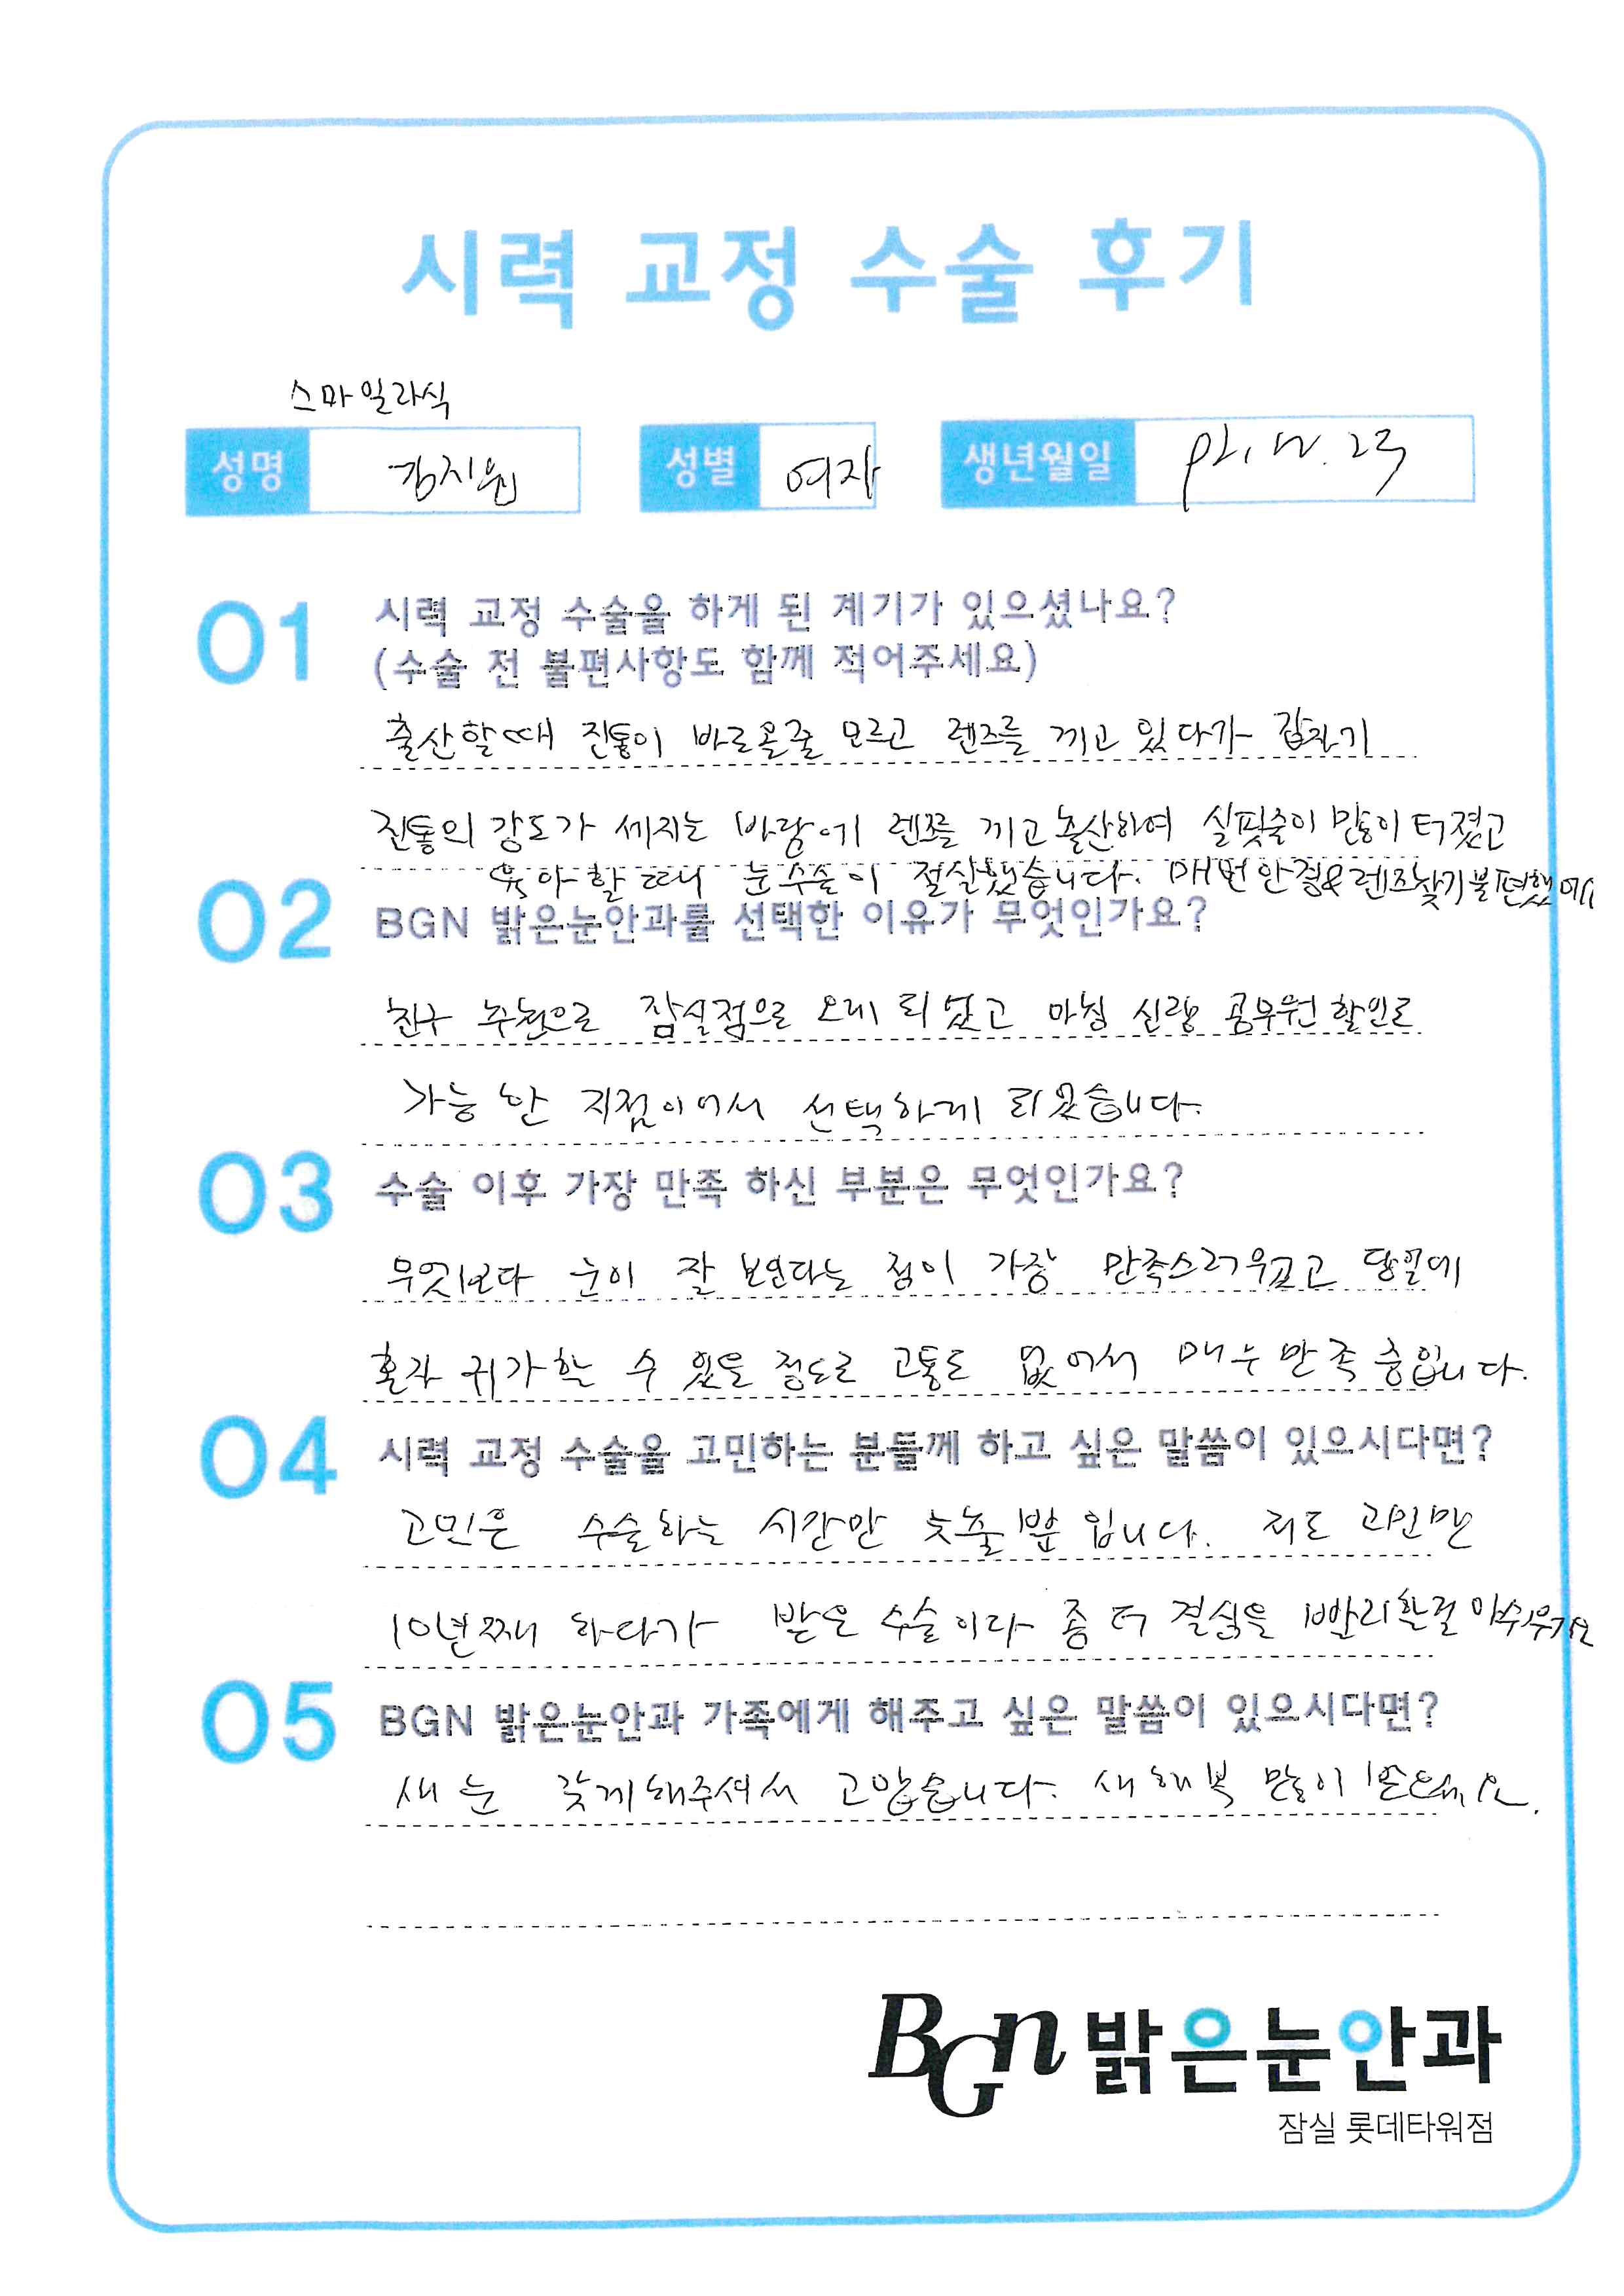 시력 교정 수술 후기
스마일라식
성명 김지원 성별 여자 생년월일
01 시력 교정 수술을 하게 된 계기가 있으셨나요?
(수술 전 불편사항도 함께 적어주세요)
출산할때 진통이 바로올줄 모르고 렌즈를 끼고 있다가 갑자기
진통의 강도가 세지는 바람에 렌즈를 끼고 출산하여 실핏줄이 많이 터졌고
육아할때 눈수술이 절실했습니다. 매번 안경&렌즈찾기불편했어요
02 BGN 밝은눈안과를 선택한 이유가 무엇인가요?
친구 추천으로 잠실점으로 오게 되었고 마침 신랑 공무원할인도
가능한 지점이어서 선택하게 되었습니다.
03 수술 이후 가장 만족 하신 부분은 무엇인가요?
무엇보다 눈이 잘 보인다는 점이 가장 만족스러우었고 당일에
혼자 귀가할 수 있을 정도로 고통도 없어서 매우 만족중입니다.
04 시력 교정 수술을 고민하는 분들께 하고 싶은 말씀이 있으시다면?
고민은 수술하는 시간만 늦출뿐입니다. 저도 고민만
10년째 하다가 받은 수술이라 좀 더 결심을 빨리할걸 아쉬워요
05 BGN 밝은눈안과 가족에게 해주고 싶은 말씀이 있으시다면?
새 눈 갖게해주셔서 고맙습니다. 새해복 많이 받으세요.
BGn 밝은눈안과
잠실 롯데타워점